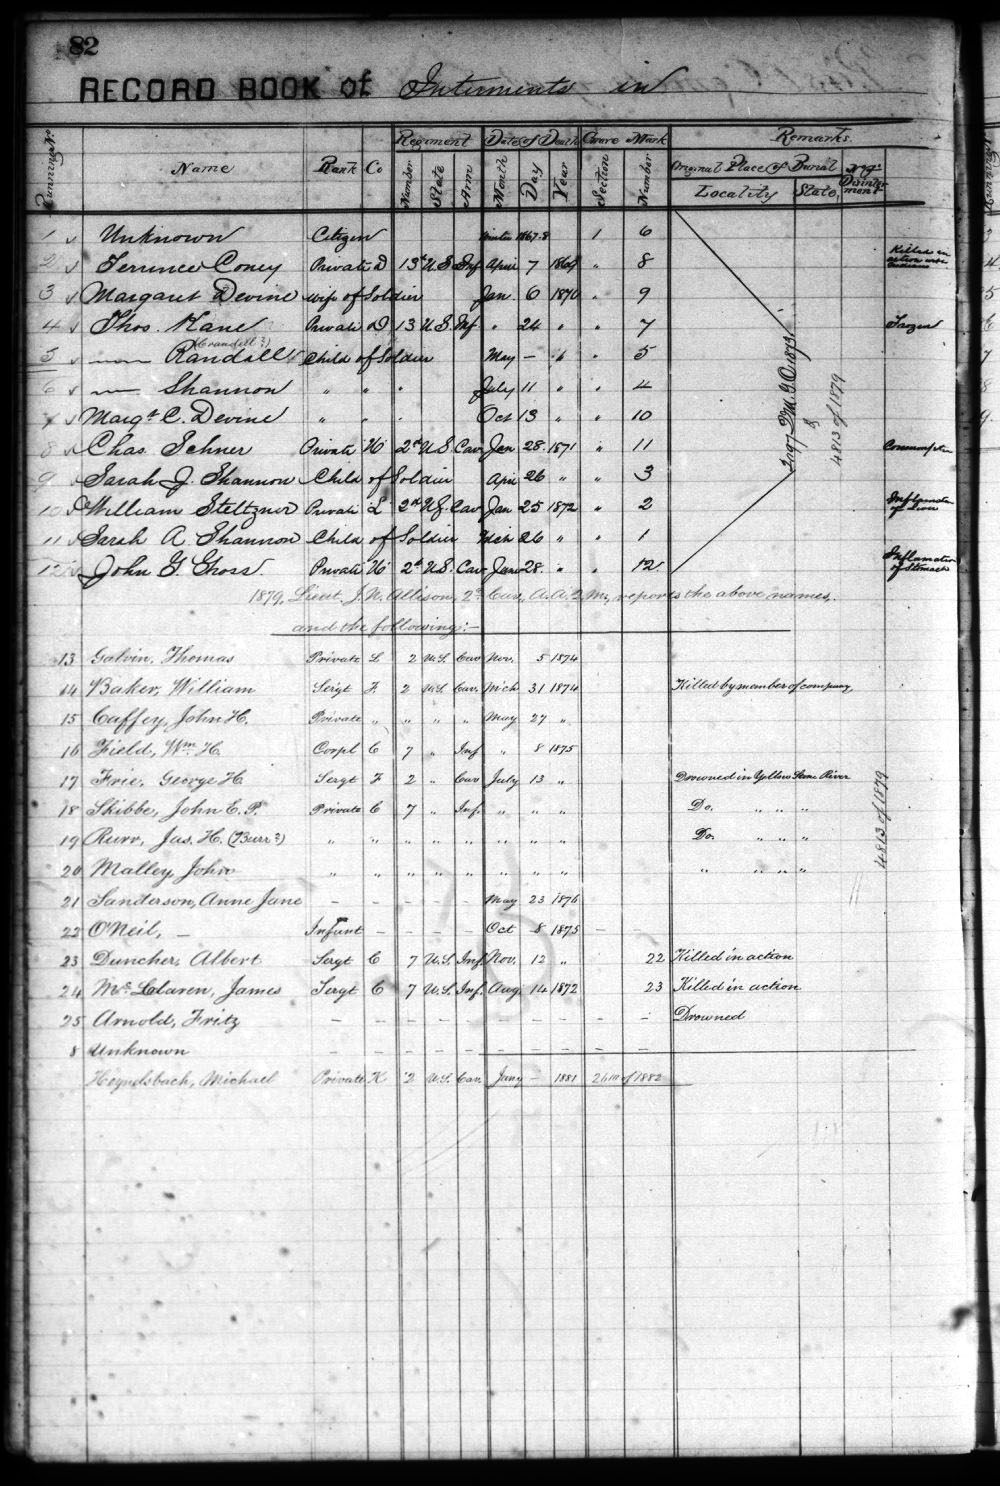 82
RECORD BOOK of Interments in
Running No. Name Rank Co Regiment Date of Death Grave Mark Remarks.
Number State Arm Month Day Year Section Number Original Place of Burial
Locality State. Disinterment
1 Unknown Citizen Winter 1867-8 1 6
2 Terrence Coney Private D 13th U S Inf April 7 1869 " 8 Killed in action with Indians
3 Margaret Devine wife of Soldier Jan. 6 1870 " 9
4 Thos. Kane Private D 13 U S Inf " 24 " " 7 Frozen
(Crandell?)
5 —— Randall Child of Soldier May — " " 5
6 —— Shannon " " " July 11 " " 4
7 Margt C. Devine " " " Oct 13 " " 10
8 Chas. Schner Private H 2d U S Cav Jan 28. 1871 " 11 Consumption
9 Sarah J. Shannon Child of Soldier Apri 26 " " 3
10 William Steltzner Private L 2nd U S. Cav Jan 25 1872 " 2 Inflamation of
11 Sarah A Shannon Child of Soldier Mch 26 " " 1
12 John G. Ghoss. Private H 2d U.S. Cav June 28. " " 12 Inflamation of Stomach
2297 Q.M.G.O. 1873
&
4813 of 1879
1879, Lieut. J. N. Allison, 2d Cav., A.A.Q.M., reports the above names,
and the following:—
13 Galvin, Thomas Private L 2 U.S. Cav Nov. 5 1874
14 Baker, William Sergt F. 2 U.S. Cav. Mch 31 1874 Killed by member of company
15 Caffey, John H. Private " " " " May 27 "
16 Field, Wm. H. Corpl C 7 " Inf " 8 1875
17 Frie, George H Sergt F 2 " Cav July 13 " Drowned in Yellow Stone River
18 Skibbe, John E. P. Private C 7 " Inf. " " " Do. " " "
19 Rurr, Jas. H. (Burr?) " " " " " " " " Do. " " "
20 Malley, John " " " " " " " " " " " "
21 Sanderson, Anne Jane — — — — — May 23 1876
22 O'Neil, — Infant — — — — Oct 8 1875 —
23 Duncher, Albert Sergt C 7 U.S. Inf. Nov. 12 " 22 Killed in action
24 McLaren, James Sergt C 7 U.S. Inf. Aug 14 1872 23 Killed in action
25 Arnold, Fritz — — — — — — — — — — Drowned
8 Unknown — — — — — — — — — —
4813 of 1879
Heyndsbach, Michael Private K 2 U.S. Cav. Jany — 1881 2611 of 1882